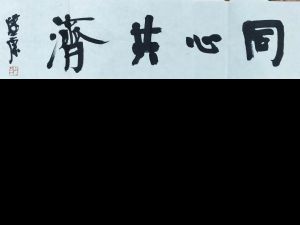 同心共濟